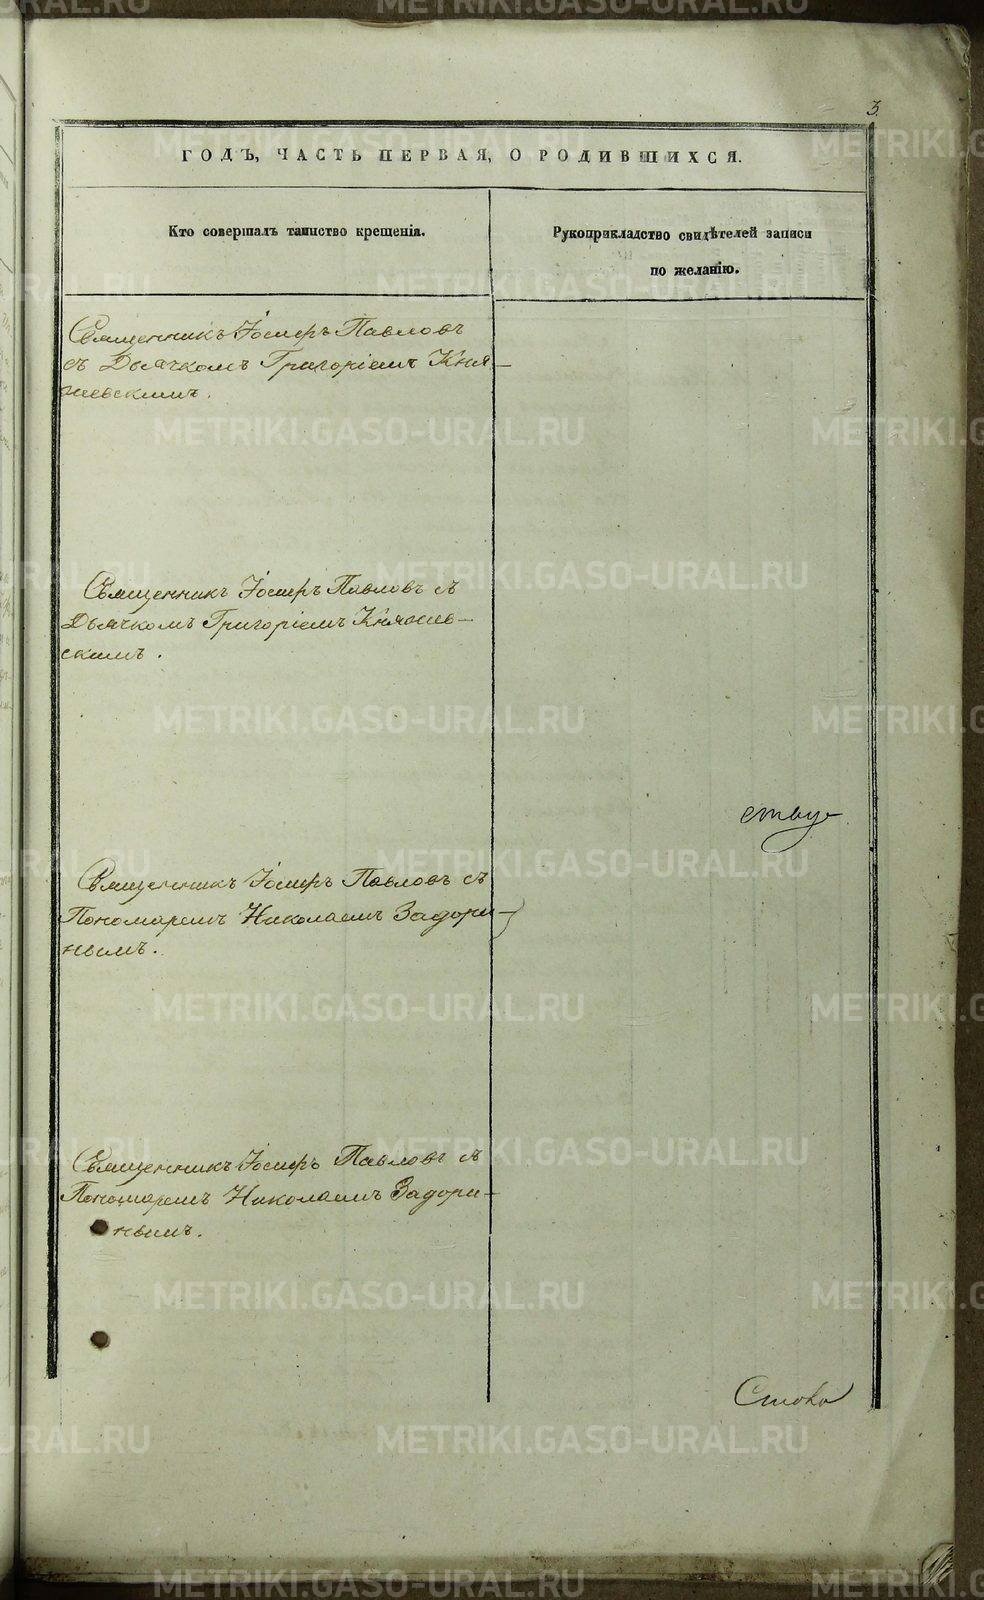 3.
ГОДЪ, ЧАСТЬ ПЕРВАЯ, О РОДИВШИХСЯ.
Кто совершалъ таинство крещенія.
Рукоприкладство свидѣтелей записи
по желанію.
Священникъ Іосифъ Павловъ
съ Дьячкомъ Григоріемъ Княж-
невскимъ.
Священникъ Іосифъ Павловъ съ
Дьячкомъ Григоріемъ Княжев-
скимъ.
ству
Священникъ Іосифъ Павловъ съ
Пономаремъ Николаемъ Задори-
нымъ.
Священникъ Іосифъ Павловъ съ
Пономаремъ Николаемъ Задори-
нымъ.
METRIKI.GASO-URAL.RU